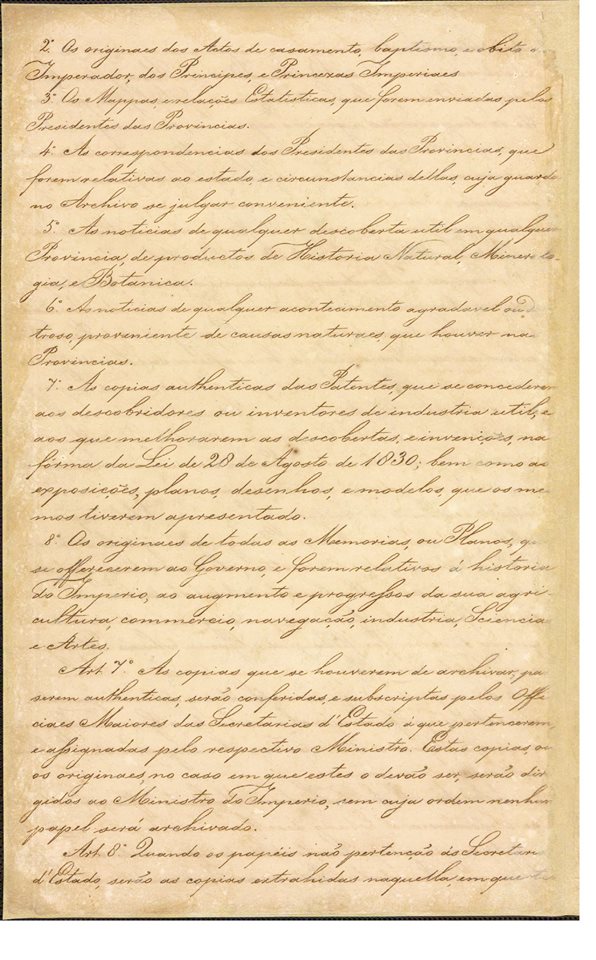 2º Os originaes dos Actos de casamento, baptismo, e obito do
Imperador, dos Principes, e Princezas Imperiaes
3º Os Mappas, e relações Estatisticas, que forem enviadas pelos
Presidentes das Provincias.
4º As correspondencias dos Presidentes das Provincias, que
forem relativas ao estado, e circunstancias dellas, cuja guarda
no Archivo se julgar conveniente.
5º As noticias de qualquer descoberta util em qualquer
Provincia, de productos de Historia Natural, Mineralo-
gia, e Botanica.
6º As noticias de qualquer acontecimento agradavel ou
troso, proveniente de causas naturaes, que houver nas
Provincias.
7º As copias authenticas das Patentes, que se concederem
aos descobridores ou inventores de industria util, e
aos que melhorarem as descobertas, e invenções, na
forma da Lei de 28 de Agosto de 1830; bem como as
exposições, planos, desenhos, e modelos, que os mes
mos tiverem apresentado.
8º Os originaes de todas as Memorias, ou Planos, que
se offerecerem ao Governo, e forem relativos á historia
do Imperio, ao augmento e progressos da sua agri-
cultura commercio, navegação, industria, Sciencias
e Artes.
Art. 7º As copias que se houverem de archivar, pa
serem authenticas, serão conferidas, e subscriptas pelos Offi
ciaes Maiores das Secretarias d'Estado á que pertencerem,
e assignadas pelo respectivo Ministro. Estas copias, ou
os originaes, no caso em que estes o devão ser, serão diri
gidos ao Ministro do Imperio, sem cuja ordem nenhum
papel será archivado.
Art. 8º Quando os papéis não pertenção ás Secretarias
d'Estado, serão as copias extrahidas naquella, em que